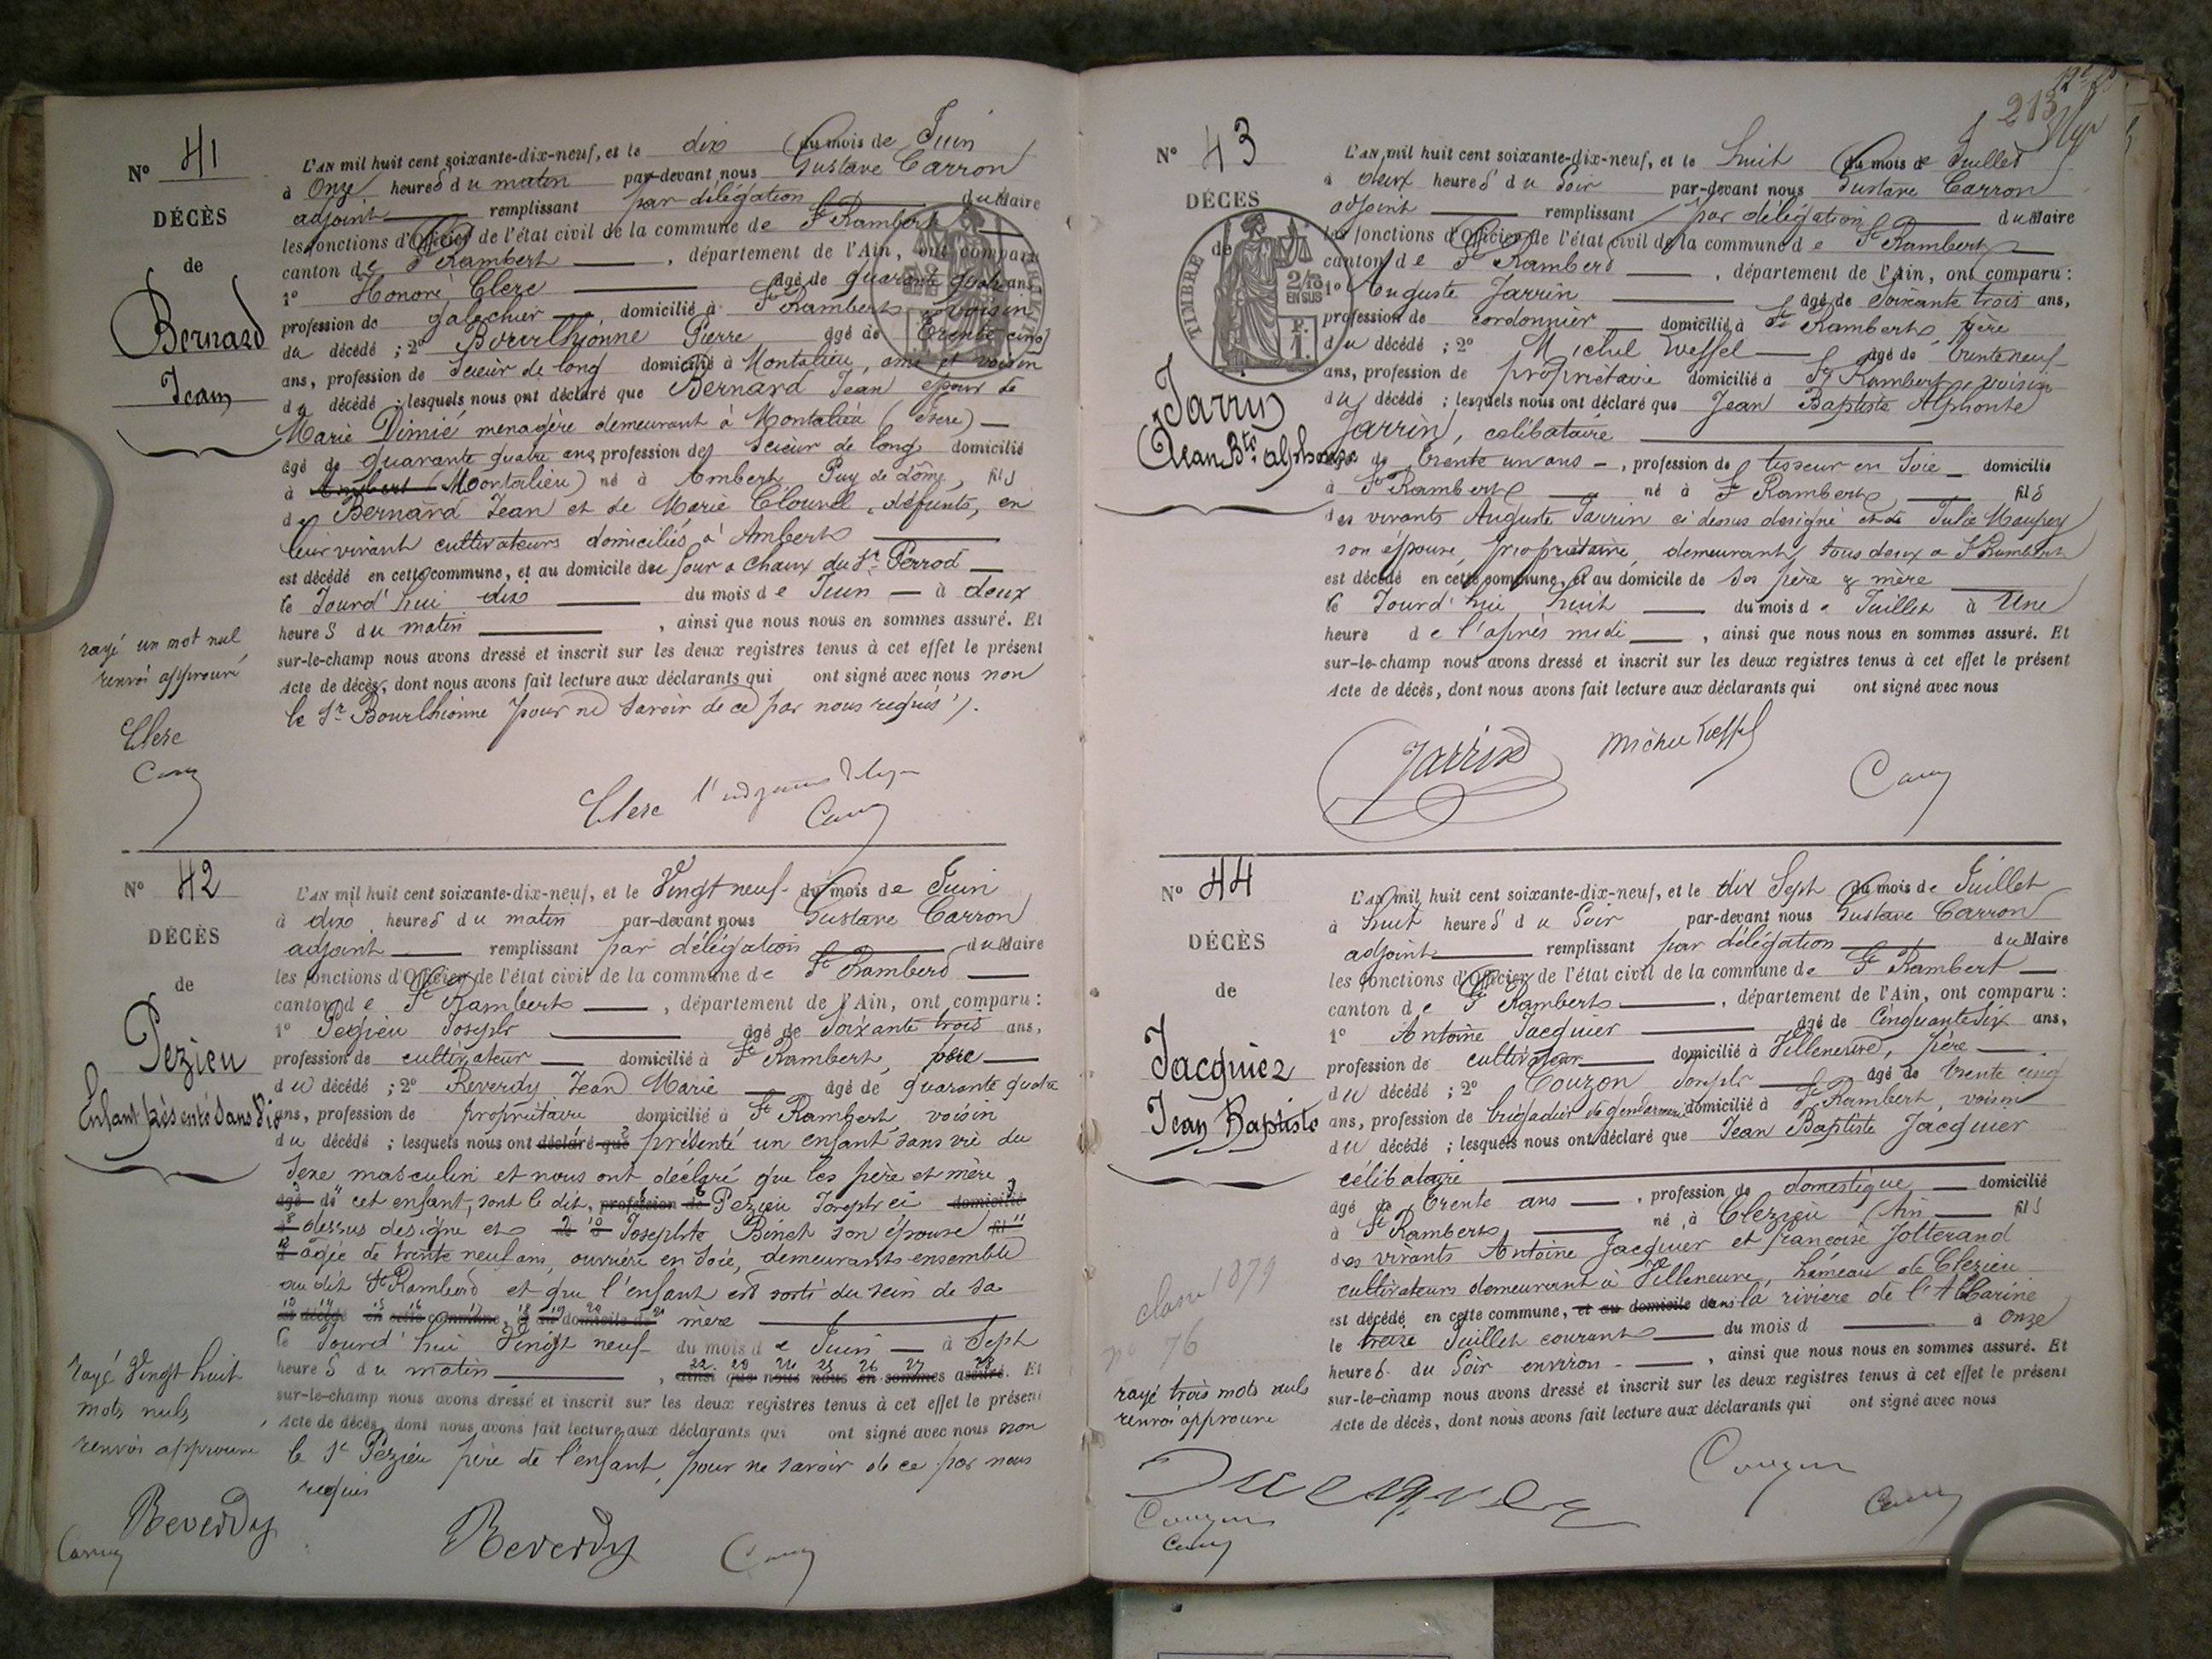 N° 41
DÉCÈS
de
Bernard
Jean
L'AN mil huit cent soixante-dix-neuf, et le dix du mois de Juin
à Onze heures du matin par-devant nous Gustave Carron
adjoint remplissant par délégation du Maire
les fonctions d'Officier de l'état civil de la commune de St Rambert
canton de St Rambert, département de l'Ain, ont comparu
1° Honoré Clerc âgé de quarante quatre ans
profession de galochier, domicilié à St Rambert, voisin
du décédé ; 2° Bourlhionne Pierre âgé de trente cinq
ans, profession de Scieur de long domicilié à Montalieu, ami et voisin
du décédé ; lesquels nous ont déclaré que Bernard Jean époux de
Marie Dimié ménagère demeurant à Montalieu (Isère)
âgé de quarante quatre ans profession de Scieur de long domicilié
à Ambert (Montalieu) né à Ambert Puy de Dôme, fils
de Bernard Jean et de Marie Clouvel, défunts, en
leur vivant cultivateurs domiciliés à Ambert
est décédé en cette commune, et au domicile du four a chaux du Sr Perrod
le Jourd'hui dix du mois de Juin à deux
heures du matin, ainsi que nous nous en sommes assuré. Et
sur-le-champ nous avons dressé et inscrit sur les deux registres tenus à cet effet le présent
Acte de décès, dont nous avons fait lecture aux déclarants qui ont signé avec nous non
le Sr Bourlhionne pour ne savoir de ce par nous requis).
rayé un mot nul
renvoi approuvé
Clerc
Clerc
N° 42
DÉCÈS
de
Pezieu
Enfant présenté sans vie
L'AN mil huit cent soixante-dix-neuf, et le Vingt neuf du mois de Juin
à dix heures du matin par-devant nous Gustave Carron
adjoint remplissant par délégation du Maire
les fonctions d'Officier de l'état civil de la commune de St Rambert
canton de St Rambert, département de l'Ain, ont comparu :
1° Pezieu Joseph âgé de Soixante trois ans,
profession de cultivateur domicilié à St Rambert, père
du décédé ; 2° Reverdy Jean Marie âgé de quarante quatre
ans, profession de propriétaire domicilié à St Rambert, voisin
du décédé ; lesquels nous ont déclaré que présenté un enfant sans vie du
Sexe masculin et nous ont déclaré que les père et mère
âgé de cet enfant, sont le dit, profession de Pezieu Joseph ci domicilié
dessus désigné et Josephte Binet son épouse fil
agée de trente neuf ans, ouvrière en soie, demeurants ensemble
au dit St Rambert et que l'enfant est sorti du sein de sa
est décédé en cette commune, et au domicile de mère
le Jourd'hui Vingt neuf du mois de Juin à Sept
heures du matin, ainsi que nous nous en sommes assuré. Et
sur-le-champ nous avons dressé et inscrit sur les deux registres tenus à cet effet le présent
Acte de décès, dont nous avons fait lecture aux déclarants qui ont signé avec nous non
le Sr Pézieu père de l'enfant, pour ne savoir de ce par nous
requis
rayé Vingt huit
mots nuls
renvoi approuvé
Reverdy
Reverdy
213
N° 43
DÉCÈS
de
TIMBRE
2/10 EN SUS
Jarrin
Jean Bte alphonse
L'AN mil huit cent soixante-dix-neuf, et le huit du mois de Juillet
à deux heures du Soir par-devant nous Gustave Carron
adjoint remplissant par délégation du Maire
les fonctions d'Officier de l'état civil de la commune de St Rambert
canton de St Rambert, département de l'Ain, ont comparu :
1° Auguste Jarrin âgé de Soixante trois ans,
profession de cordonnier domicilié à St Rambert, père
du décédé ; 2° Michel Loeffel âgé de trente neuf
ans, profession de propriétaire domicilié à St Rambert, voisin
du décédé ; lesquels nous ont déclaré que Jean Baptiste Alphonse
Jarrin, célibataire
âgé de trente un ans, profession de tisseur en Soie domicilié
à St Rambert né à St Rambert, fils
des vivants Auguste Jarrin ci dessus désigné et de Julie Maupey
son épouse, propriétaire, demeurant tous deux a St Rambert
est décédé en cette commune, et au domicile de ses père & mère
le Jourd'hui huit du mois de Juillet à Une
heure de l'après midi, ainsi que nous nous en sommes assuré. Et
sur-le-champ nous avons dressé et inscrit sur les deux registres tenus à cet effet le présent
Acte de décès, dont nous avons fait lecture aux déclarants qui ont signé avec nous
Jarrin Michel Loeffel
N° 44
DÉCÈS
de
Jacquier
Jean Baptiste
L'AN mil huit cent soixante-dix-neuf, et le dix Sept du mois de Juillet
à huit heures du Soir par-devant nous Gustave Carron
adjoint remplissant par délégation du Maire
les fonctions d'Officier de l'état civil de la commune de St Rambert
canton de St Rambert, département de l'Ain, ont comparu :
1° Antoine Jacquier âgé de Cinquante Six ans,
profession de cultivateur domicilié à Villeneuve, père
du décédé ; 2° Couzon Joseph âgé de trente cinq
ans, profession de brigadier de gendarmerie domicilié à St Rambert, voisin
du décédé ; lesquels nous ont déclaré que Jean Baptiste Jacquier
célibataire
âgé de trente ans, profession de domestique domicilié
à St Rambert, né à Clezieu Ain fils
des vivants Antoine Jacquier et françoise Jolterand
cultivateurs demeurant à Villeneuve, hameau de Clezieu
est décédé en cette commune, et au domicile dans la rivière de l'Albarine
le treize Juillet courant du mois d à Onze
heures du Soir environ, ainsi que nous nous en sommes assuré. Et
sur-le-champ nous avons dressé et inscrit sur les deux registres tenus à cet effet le présent
Acte de décès, dont nous avons fait lecture aux déclarants qui ont signé avec nous
classe 1879
n° 76
rayé trois mots nuls
renvoi approuvé
Couzon